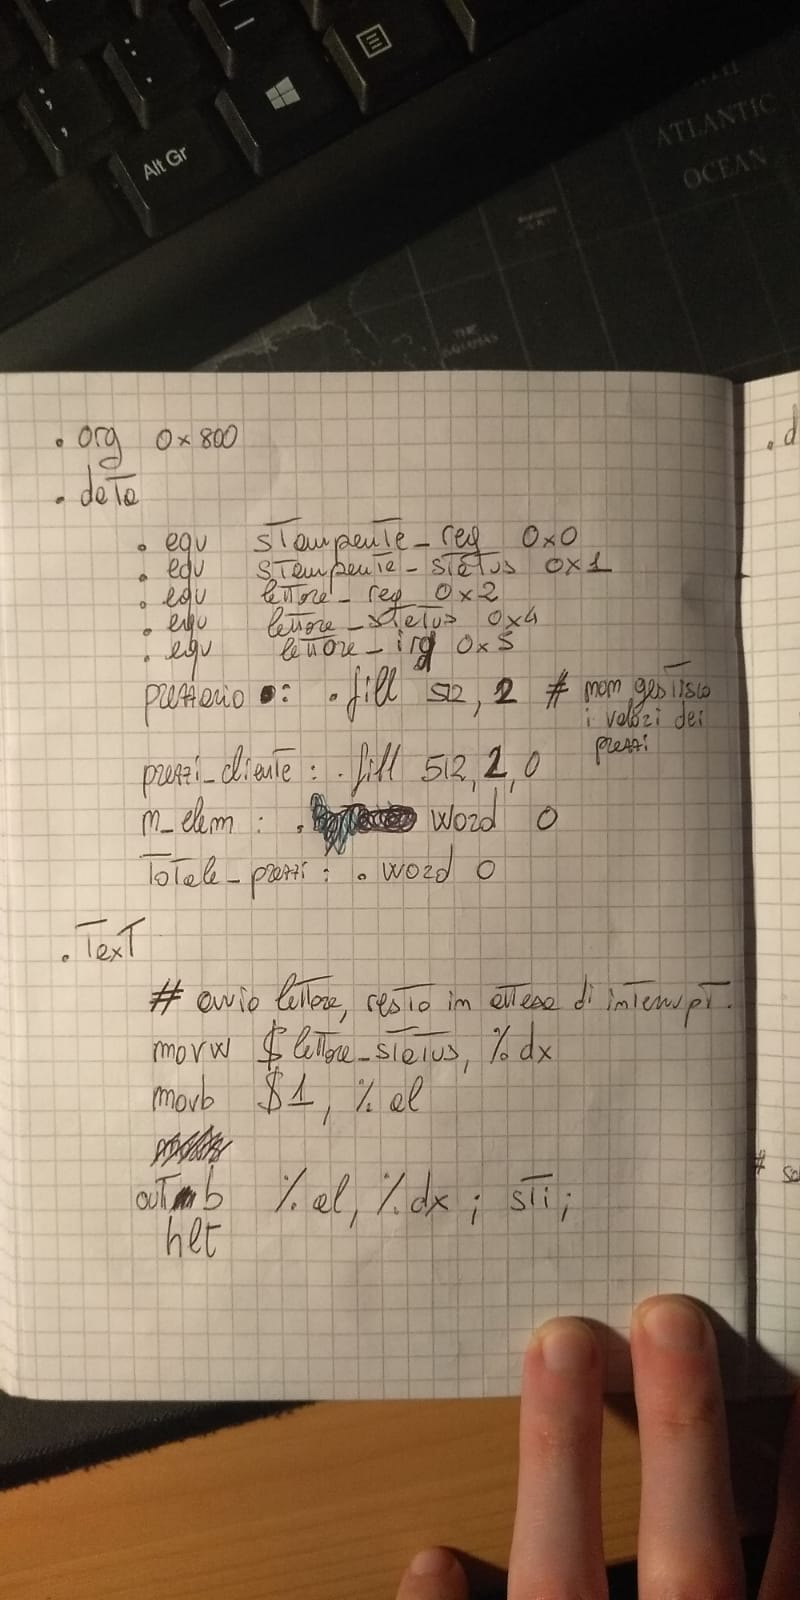 Alt Gr
ATLANTIC
OCEAN
THE
.org 0x800
.data
.equ stampante_reg 0x0
.equ stampante_status 0x1
.equ lettore_reg 0x2
.equ lettore_status 0x4
.equ lettore_irq 0x5
prezzario : .fill 512, 2 # non gestisco
i valori dei
prezzi
prezzi_cliente : .fill 512, 2, 0
n_elem : . word 0
Totale_prezzi : . word 0
.Text
# avvio lettore, resto in attesa di interrupt.
movw $ lettore_status, % dx
movb $1, % al
outb % al, % dx ; sti ;
hlt
.d
#